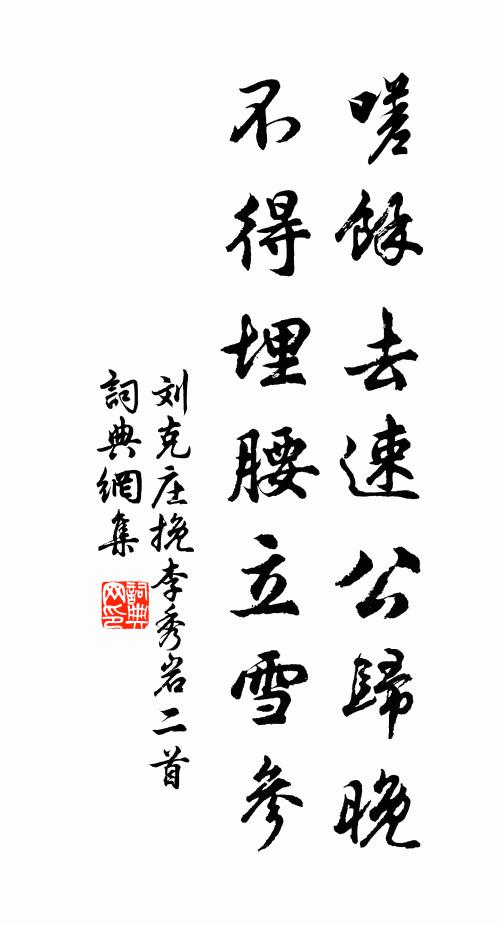 嗟餘去速公歸晚
不得埋腰立雪參
刘克庄挽李秀岩二首
詞典網集
詞典网印